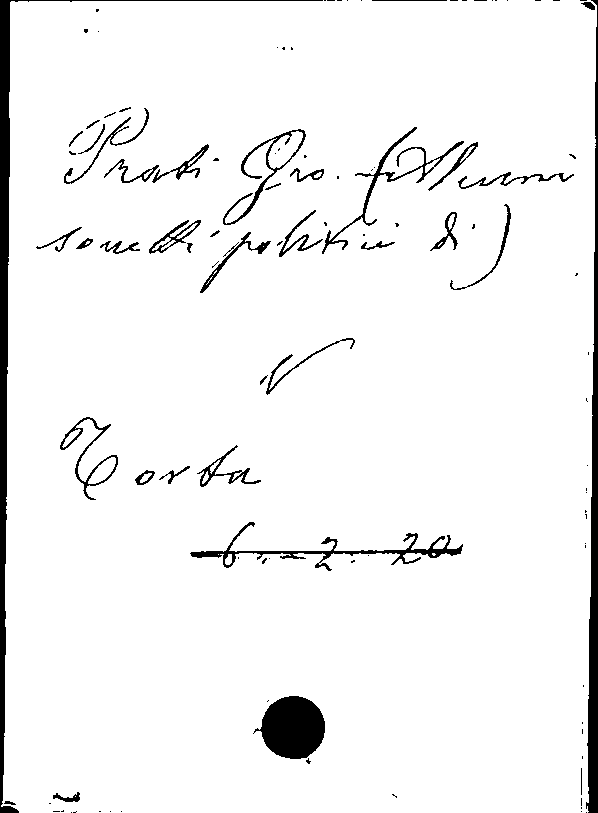 Prati Gio. - (Alcuni
sonetti politici di)
V
Torta
6. - 2. 20